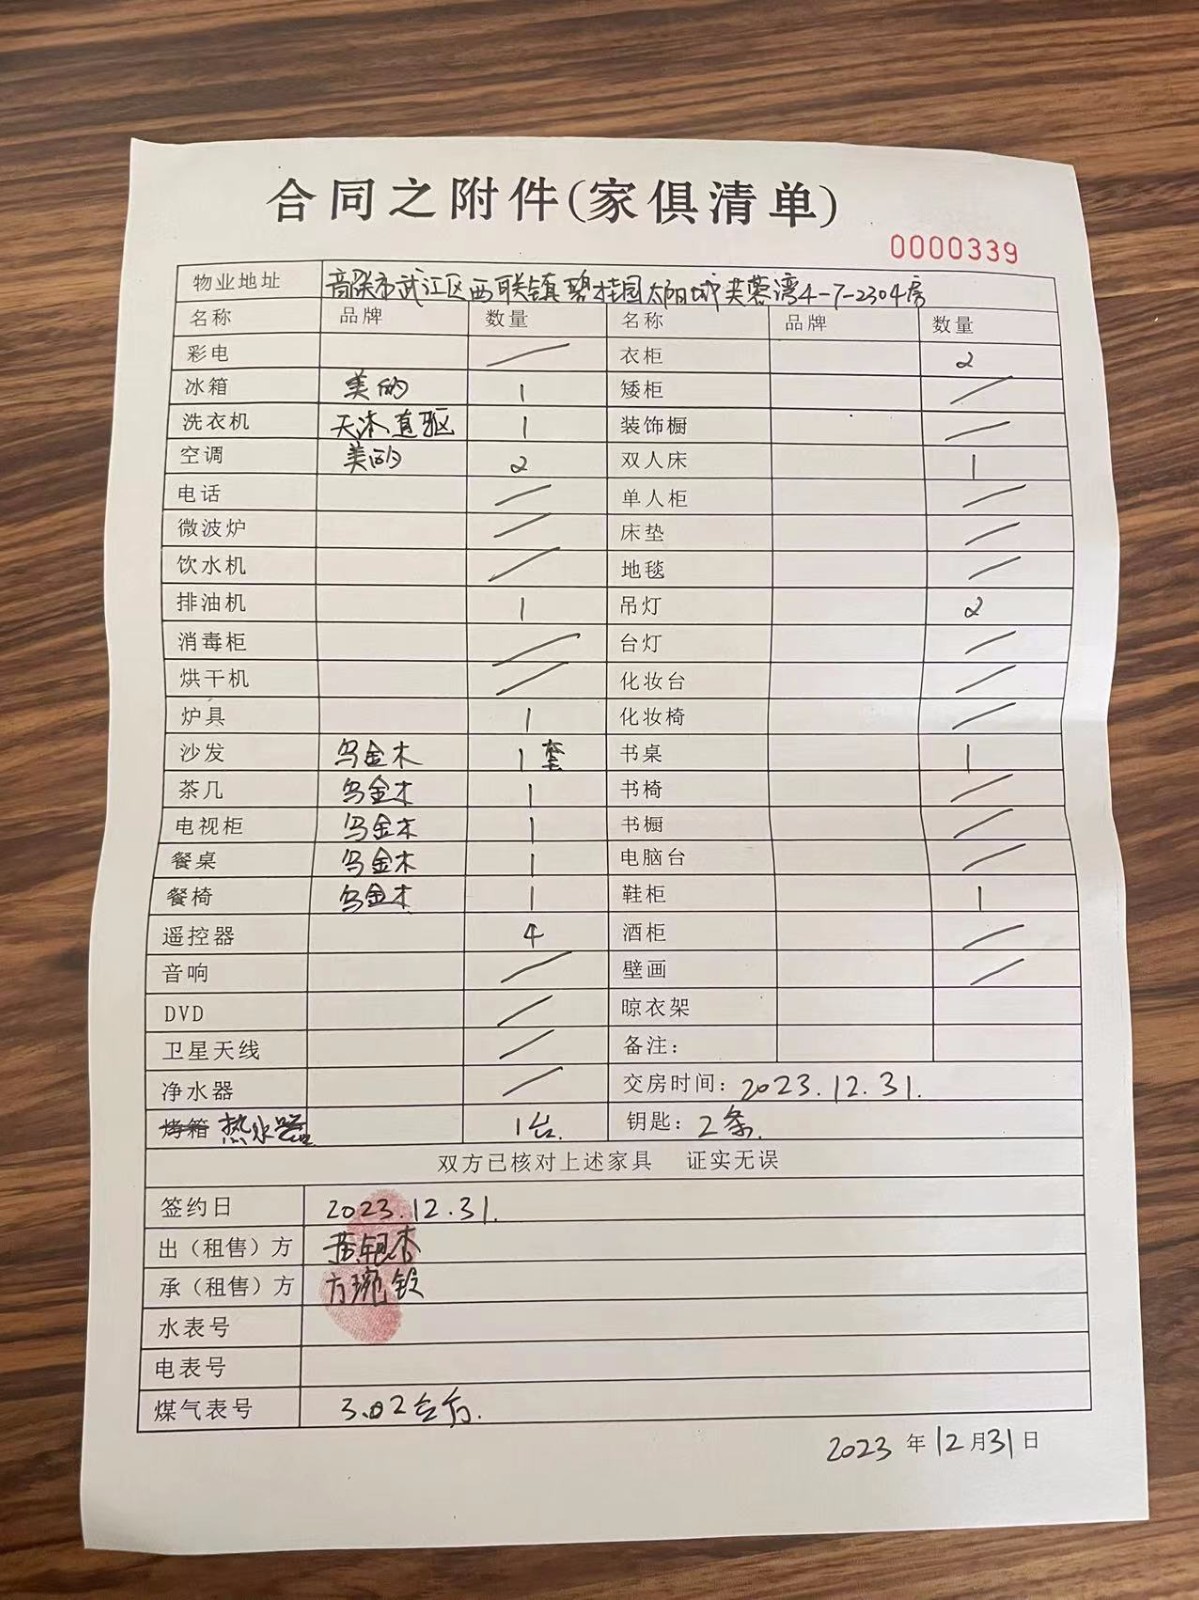 合同之附件(家俱清单)
0000339
物业地址 韶关市武江区西联镇碧桂园太阳城芙蓉湾4-7-2304房
名称 品牌 数量 名称 品牌 数量
彩电 / 衣柜 2
冰箱 美的 1 矮柜 /
洗衣机 直驱 1 装饰橱 /
空调 美的 2 双人床 1
电话 / 单人柜 /
微波炉 / 床垫 /
饮水机 / 地毯 /
排油机 1 吊灯 2
消毒柜 / 台灯 /
烘干机 / 化妆台 /
炉具 1 化妆椅 /
沙发 乌金木 1套 书桌 1
茶几 乌金木 1 书椅 /
电视柜 乌金木 1 书橱 /
餐桌 乌金木 1 电脑台 /
餐椅 乌金木 1 鞋柜 1
遥控器 4 酒柜 /
音响 / 壁画 /
DVD / 晾衣架
卫星天线 / 备注：
净水器 / 交房时间：2023.12.31.
烤箱 热水器 1台. 钥匙：2条.
双方已核对上述家具 证实无误
签约日 2023.12.31.
出（租售）方 黄银杏
承（租售）方 方琬铵
水表号
电表号
煤气表号 3.02
2023 年 12 月 31 日